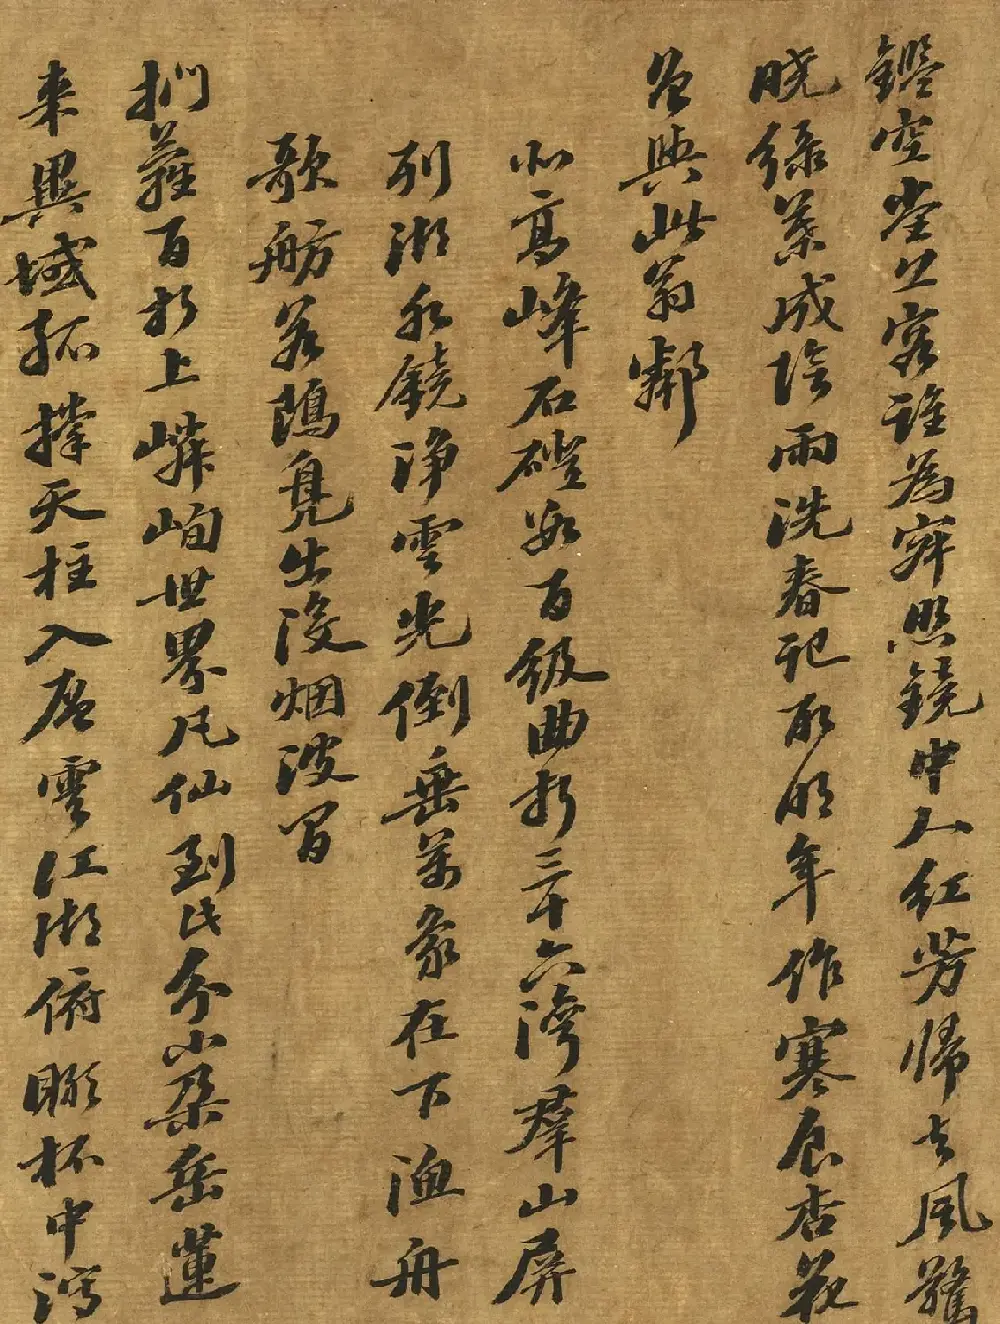 鑑空堂上客誰為寂照鏡中人紅芳歸去風驚
曉綠葉成陰雨洗春記取明年作寒食杏花
曾與此翁鄰
北高峰石磴數百級曲折三十六灣羣山屏
列湖水鏡淨雲光倒垂萬象在下漁舟
歌舫若鷗鳧出沒烟波間
捫蘿百折上嶙峋世界凡仙到此分小朵岳蓮
來異域孤撐天柱入層雲江湖俯瞰杯中瀉